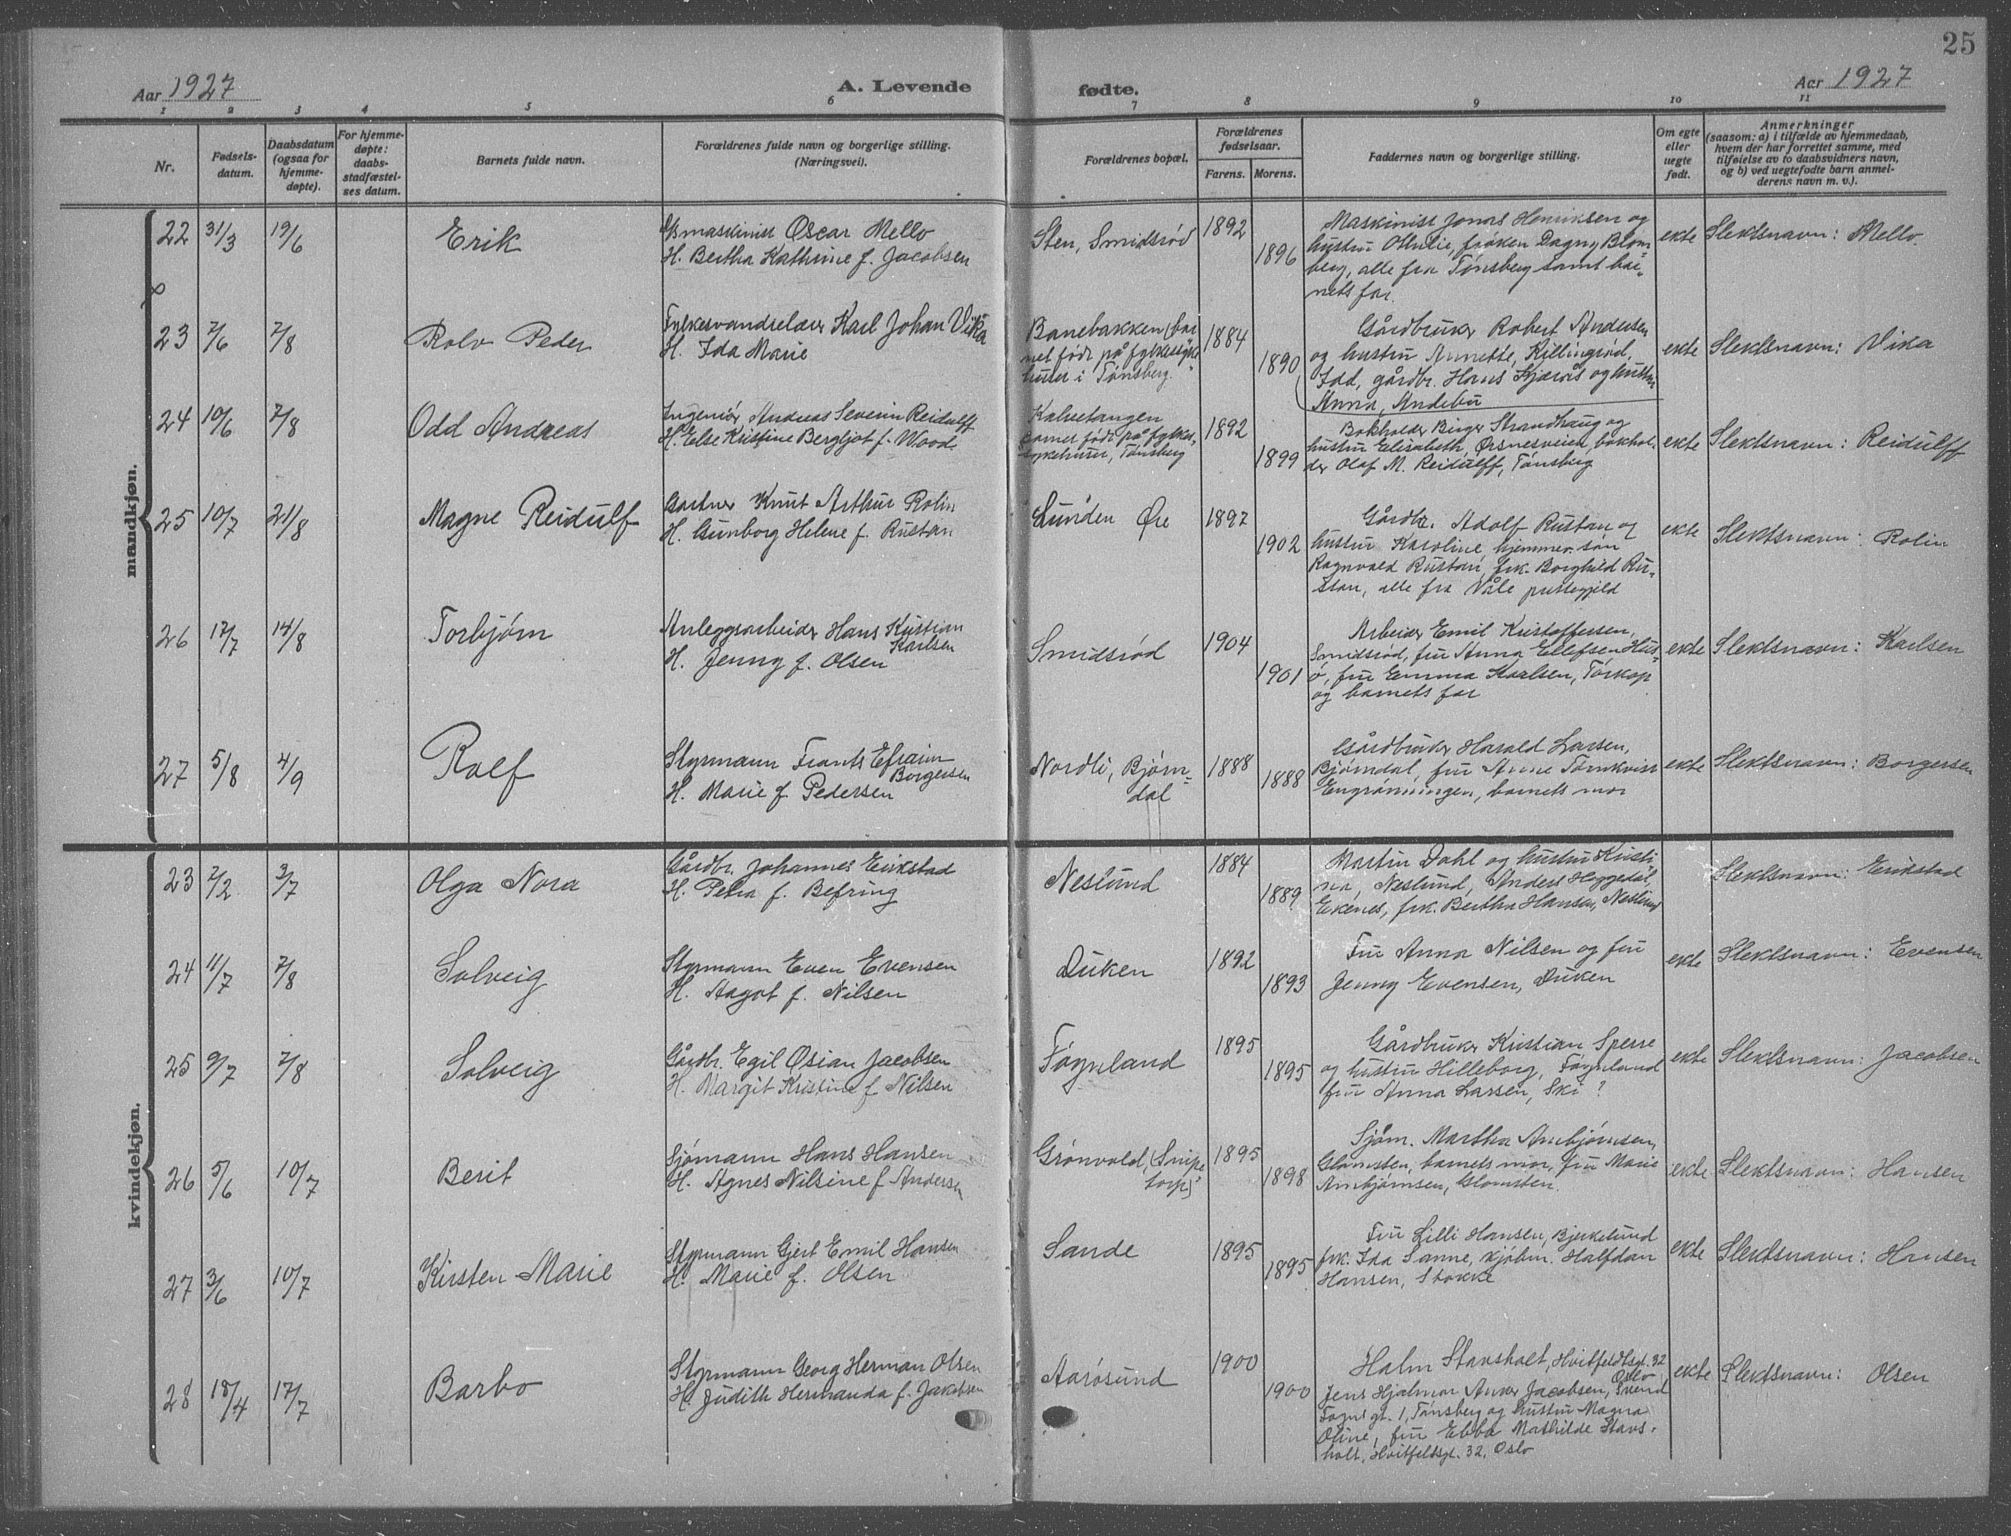 25
Aar 1927
A. Levende
fødte.
Aar 1927
1 2 3 4 5 6 7 8 9 10 11
Nr.
Fødsels-
datum.
Daabsdatum
(ogsaa for
hjemme-
døpte).
For hjemme-
døpte:
daabs-
stadfæstel-
ses datum.
Barnets fulde navn.
Forældrenes fulde navn og borgerlige stilling.
(Næringsvei).
Forældrenes bopæl.
Forældrenes
fødselsaar.
Farens. Morens.
Faddernes navn og borgerlige stilling.
Om egte
eller
uegte
født.
Anmerkninger
(saasom: a) i tilfælde av hjemmedaab,
hvem der har forrettet samme, med
tilføielse av to daabsvidners navn,
og b) ved uegtefødte barn anmel-
derens navn m. v.).
mandkjøn.
22 31/3 19/6 Erik
maskinist Oscar Mello
H. Bertha Kathrine f. Jacobsen
Sten, Smidsrød
1892
1896
Maskinist Jonas Henriksen og
hustru Othilie, frøken Dagny Blom-
berg, alle fra Tønsberg samt bar-
nets far.
ekte
Slektsnavn: Mello
23 7/6 7/8 Rolv Peder
Karl Johan Vika
H. Ida Marie
Banebakken (bar
net født på fylkessyke
huset i Tønsberg.
1884
1890
Gårdbruker Robert Andersen
og hustru Annette, Killingrød,
Idd, gårdbr. Hans Kjærås og hustru
Anna, Andebu
ekte
Slektsnavn: Vika
24 10/6 7/8 Odd Andreas
Ingeniør Andreas Severin Reidulff
H. Else Kristine Bergljot f. Wood
Kalvetangen
barnet født på fylkes-
sykehuset, Tønsberg
1892
1899
Bokholder Birger Strandhaug og
hustru Elisabeth, Ørsnesveien, bokhol-
der Olaf M. Reidulff, Tønsberg
ekte
Slektsnavn: Reidulff
25 10/7 21/8 Magne Reidulf
Gartner Knut Arthur Rolin
H. Gunborg Helene f. Rustan
Lunden Øre
1897
1902
Gårdbr. Adolf Rustan og
hustru Karoline, hjemmev. søn
Ragnvald Rustan, frk. Borghild Ru-
stan, alle fra Våle prestegjeld
ekte
Slektsnavn: Rolin
26 17/7 14/8 Torbjørn
Anleggsarbeider Hans Kristian
Karlsen
H. Jenny f. Olsen
Smidsrød
1904
1901
Arbeider Emil Kristoffersen,
Smidsrød, fru Anna Ellefsen Hus-
ø, fru Emma Karlsen, Torkop
og barnets far
ekte
Slektsnavn: Karlsen
27 5/8 4/9 Rolf
Styrmann Frants Efraim
Borgersen
H. Marie f. Pedersen
Nordli, Bjørn-
dal
1888
1888
Gårdbruker Harald Larsen,
Bjørndal, fru Anne Tørnkvist
Engrønningen, barnets mor
ekte
Slektsnavn: Borgersen
kvindekjøn.
23 2/2 3/7 Olga Nora
Gårdbr. Johannes Erikstad
H. Petra f. Befring
Neslund
1884
1889
Martin Dahl og hustru Kristi
na, Neslund, Anders Heggedal,
Ekenes, frk. Bertha Hansen, Neslund
Slektsnavn: Erikstad
24 11/7 7/8 Solveig
Styrmann Even Evensen
H. Aagot f. Nilsen
Duken
1892
1893
Fru Anna Nilsen og fru
Jenny Evensen, Duken
ekte
Slektsnavn: Evensen
25 9/7 7/8 Solveig
Gårdbr. Egil Osian Jacobsen
H. Margit Kristine f. Nilsen
Føynland
1895
1895
Gårdbruker Kristian Sperre
og hustru Hilleborg, Føynland
fru Anna Larsen, Ski ?
ekte
Slektsnavn: Jacobsen
26 5/6 10/7 Berit
Sjømann Hans Hansen
H. Agnes Nilsine f. Andersen
Grønvold, (Snipe
torp)
1895
1898
Sjøm. Martha Arnbjørnsen,
Glomsten, barnets mor, fru Marie
Arnbjørnsen, Glomsten.
ekte
Slektsnavn: Hansen
27 3/6 10/7 Kirsten Marie
Styrmann Gjert Emil Hansen
H. Marie f. Olsen
Sande
1895
1895
Fru Lilli Hansen, Bjerkelund
frk. Ida Sanne, kjøbm. Halfdan
Hansen, Stokke
ekte
Slektsnavn: Hansen
28 18/4 17/7 Barbo
Styrmann Georg Herman Olsen
H. Judith Hermanda f. Jakobsen
Aarøsund
1900
1900
Halm Stavsholt, Hvitfeldtsgt. 32
Oslo
Jens Hjalmar Anker Jacobsen, Svend
Foyns gt. 1, Tønsberg og hustru Magna
Oline, fru Ebba Mathilde Stavs-
holt, Hvitfeltsgt. 32, Oslo
ekte
Slektsnavn: Olsen